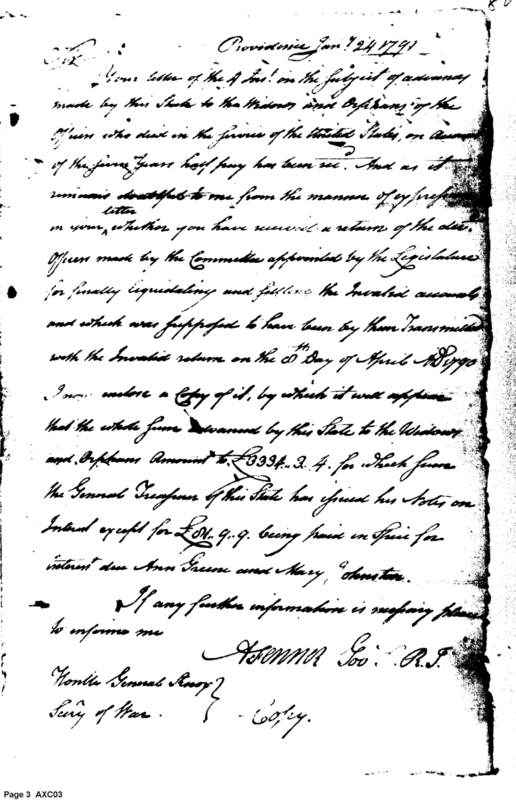 Providence Jany. 24 1791
Sir
Your letter of the 4 Inst. on the Subject of advances
made by this State to the Widows and Orphans of the
Officers who died in the service of the United States, on Account
of the seven Years half pay has been recd. And as it
remains doubtful to me from the manner of expression
in your letter whether you have received a return of the
Officers made by the Committee appointed by the Legislature
for finally liquidating and settling the Invalid accounts
and which was supposed to have been by them Transmitted
with the Invalid return on the 8th Day of April AD 1790
I now enclose a Copy of it, by which it will appear
that the whole sum advanced by this State to the Widows
and Orphans Amount to £3334..3.4. for which sum
the General Treasurer of this State has issued his Notes on
Interest except for .. 9..9. being paid in Specie for
interest due Ann Greene and Mary Johnston.
If any further information is necessary please
to inform me
A Fenner Gov. R.I.
Honble General Knox
Secry of War.
Copy.
Page 3 AXC03